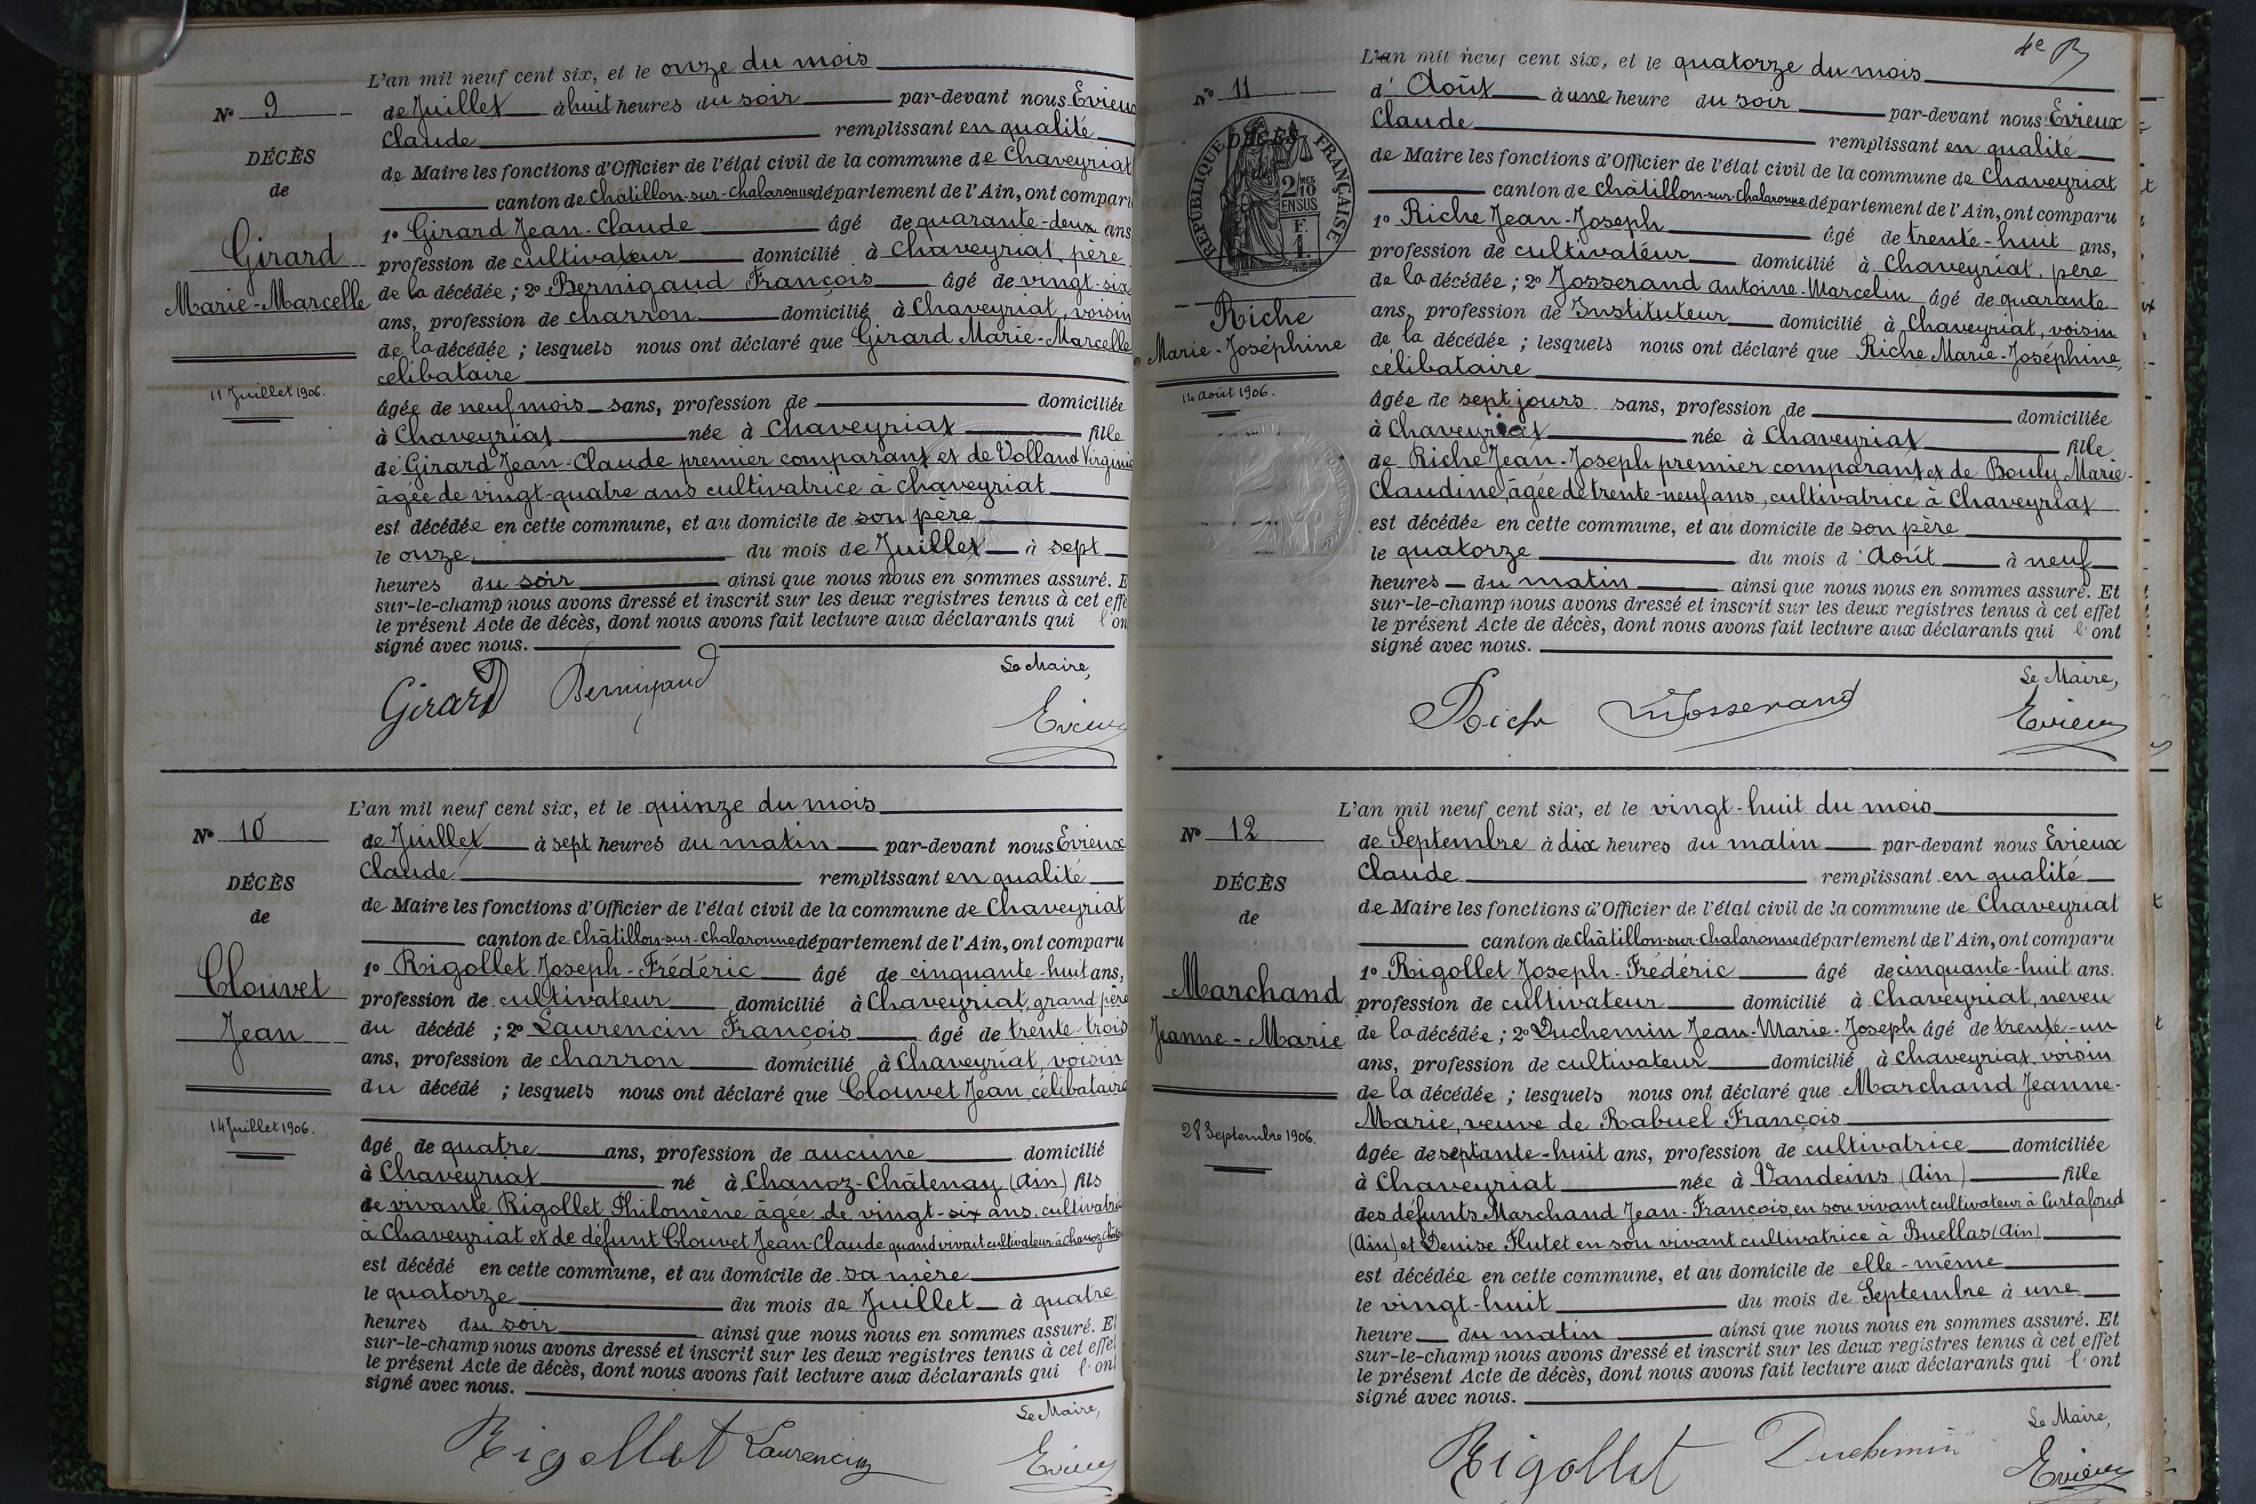 L'an mil neuf cent six, et le onze du mois
N° 9
de Juillet à huit heures du soir par-devant nous Evieux
Claude remplissant en qualité
DÉCÈS
de Maire les fonctions d'Officier de l'état civil de la commune de Chaveyriat
de
canton de Châtillon-sur-Chalaronne département de l'Ain, ont comparu
1° Girard Jean-Claude âgé de quarante-deux ans
Girard
profession de cultivateur domicilié à Chaveyriat, père
Marie-Marcelle
de la décédée ; 2° Bernigaud François âgé de vingt-six
ans, profession de charron domicilié à Chaveyriat, voisin
de la décédée ; lesquels nous ont déclaré que Girard Marie-Marcelle
célibataire
11 Juillet 1906.
âgée de neuf mois sans, profession de domiciliée
à Chaveyriat née à Chaveyriat fille
de Girard Jean-Claude premier comparant et de Volland Virginie
âgée de vingt-quatre ans cultivatrice à Chaveyriat
est décédée en cette commune, et au domicile de son père
le onze du mois de Juillet à sept
heures du soir ainsi que nous nous en sommes assuré. E
sur-le-champ nous avons dressé et inscrit sur les deux registres tenus à cet effe
le présent Acte de décès, dont nous avons fait lecture aux déclarants qui l'on
signé avec nous.
Le Maire,
Girard Bernigaud Evieux
L'an mil neuf cent six, et le quinze du mois
N° 10
de Juillet à sept heures du matin par-devant nous Evieux
Claude remplissant en qualité
DÉCÈS
de Maire les fonctions d'Officier de l'état civil de la commune de Chaveyriat
de
canton de Châtillon-sur-Chalaronne département de l'Ain, ont comparu
1° Rigollet Joseph-Frédéric âgé de cinquante-huit ans,
Clouvet
profession de cultivateur domicilié à Chaveyriat, grand père
Jean
du décédé ; 2° Laurencin François âgé de trente trois
ans, profession de charron domicilié à Chaveyriat, voisin
du décédé ; lesquels nous ont déclaré que Clouvet Jean, célibataire
14 Juillet 1906.
âgé de quatre ans, profession de aucune domicilié
à Chaveyriat né à Chanoz-Châtenay (Ain) fils
de vivante Rigollet Philomène âgée de vingt-six ans, cultivatrice
à Chaveyriat et de défunt Clouvet Jean-Claude quand vivait cultivateur à Chanoz-Châte
est décédé en cette commune, et au domicile de sa mère
le quatorze du mois de Juillet à quatre
heures du soir ainsi que nous nous en sommes assuré. Et
sur-le-champ nous avons dressé et inscrit sur les deux registres tenus à cet effet
le présent Acte de décès, dont nous avons fait lecture aux déclarants qui l'ont
signé avec nous.
Le Maire,
Rigollet Laurencin Evieux
4e
L'an mil neuf cent six, et le quatorze du mois
N° 11
d'Août à une heure du soir par-devant nous Evieux
Claude remplissant en qualité
DÉCÈS
RÉPUBLIQUE FRANÇAISE
2/10 MES
EN SUS
F.
1.
de Maire les fonctions d'Officier de l'état civil de la commune de Chaveyriat
canton de Châtillon-sur-Chalaronne département de l'Ain, ont comparu
1° Riche Jean-Joseph âgé de trente-huit ans,
profession de cultivateur domicilié à Chaveyriat, père
de la décédée ; 2° Josserand Antoine-Marcelin âgé de quarante
Riche
ans, profession de Instituteur domicilié à Chaveyriat, voisin
Marie-Joséphine
de la décédée ; lesquels nous ont déclaré que Riche Marie-Joséphine,
célibataire
14 août 1906.
âgée de sept jours sans, profession de domiciliée
à Chaveyriat née à Chaveyriat fille
de Riche Jean-Joseph premier comparant et de Bouly Marie-
Claudine, âgée de trente-neuf ans, cultivatrice à Chaveyriat
est décédée en cette commune, et au domicile de son père
le quatorze du mois d'Août à neuf
heures du matin ainsi que nous nous en sommes assuré. Et
sur-le-champ nous avons dressé et inscrit sur les deux registres tenus à cet effet
le présent Acte de décès, dont nous avons fait lecture aux déclarants qui l'ont
signé avec nous.
Le Maire,
Riche Josserand Evieux
L'an mil neuf cent six, et le vingt-huit du mois
N° 12
de Septembre à dix heures du matin par-devant nous Evieux
Claude remplissant en qualité
DÉCÈS
de Maire les fonctions d'Officier de l'état civil de la commune de Chaveyriat
de
canton de Châtillon-sur-Chalaronne département de l'Ain, ont comparu
1° Rigollet Joseph-Frédéric âgé de cinquante-huit ans.
Marchand
profession de cultivateur domicilié à Chaveyriat, neveu
Jeanne-Marie
de la décédée ; 2° Duchemin Jean-Marie-Joseph âgé de trente-un
ans, profession de cultivateur domicilié à Chaveyriat, voisin
de la décédée ; lesquels nous ont déclaré que Marchand Jeanne-
Marie, veuve de Rabuel François
28 Septembre 1906.
âgée de septante-huit ans, profession de cultivatrice domiciliée
à Chaveyriat née à Vandeins (Ain) fille
des défunts Marchand Jean-François, en son vivant cultivateur à Curtafond
(Ain) et Denise Flutet en son vivant cultivatrice à Buellas (Ain)
est décédée en cette commune, et au domicile de elle-même
le vingt-huit du mois de Septembre à une
heure du matin ainsi que nous nous en sommes assuré. Et
sur-le-champ nous avons dressé et inscrit sur les deux registres tenus à cet effet
le présent Acte de décès, dont nous avons fait lecture aux déclarants qui l'ont
signé avec nous.
Le Maire,
Rigollet Duchemin Evieux